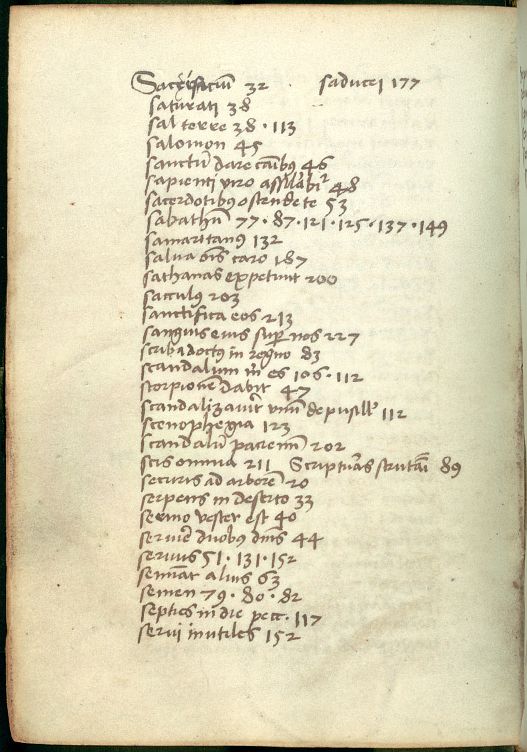 Sacrificiū 32 saducei 177
saturati 38
sal terre 38 · 113
salomon 45
sanctū dare canibꝯ 46
sapienti viro assilabit̃ 48
sacerdotibꝯ ostendete 53
sabathū 77 · 87 · 121 · 125 · 137 · 149
samaritanꝯ 132
salua oīs caro 187
sathanas expetiuit 200
sacculꝯ 203
sanctifica eos 213
sanguis eius sup nos 227
scriba doctꝯ in regno 83
scandalum m̄ es 106 · 112
scorpionē dabit 47
scandalizauīt vnū de pusill' 112
scenophegia 123
scandalū paciemī 202
scis omnia 211 Scripturas scrutāī 89
securis ad arborē 20
serpens in deserto 33
sermo vester est 40
seruire duobꝯ dnīs 44
seruus 51 · 131 · 152
semīat alius 63
semen 79 · 80 · 82
septies in die pecc · 117
serui inutiles 152